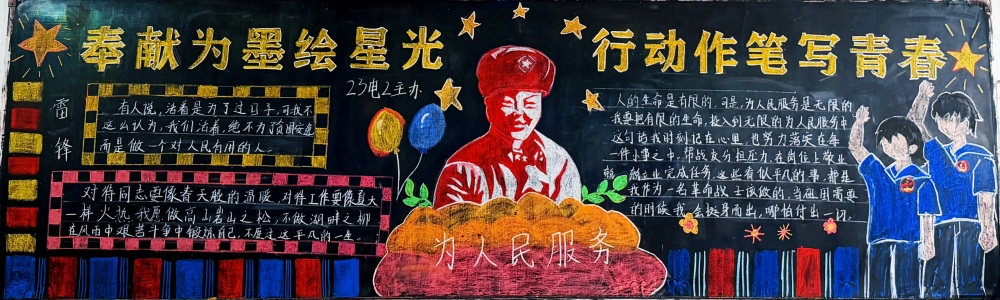 奉献为墨绘星光
行动作笔写青春
23电2主办
雷锋
有人说,活着是为了过日子,可我不
这么认为,我们活着,绝不为了贪图安逸
而是做一个对人民有用的人.
对待同志要像春天般的温暖,对待工作要像夏天
一样火热,我愿做高山岩山之松,不做湖畔之柳
在风雨中艰苦斗争中锻炼自己,不度过这平凡的一生.
为人民服务
人的生命是有限的,可是,为人民服务是无限的
我要把有限的生命,投入到无限的为人民服务中
这句话我时刻记在心里,也努力落实在每
一件小事之中,帮战友分担压力,在岗位上敬业
完成任务,这些看似平凡的事,都是
我作为一名革命战士该做的,当祖国需要
的时候,我会挺身而出,哪怕付出一切.